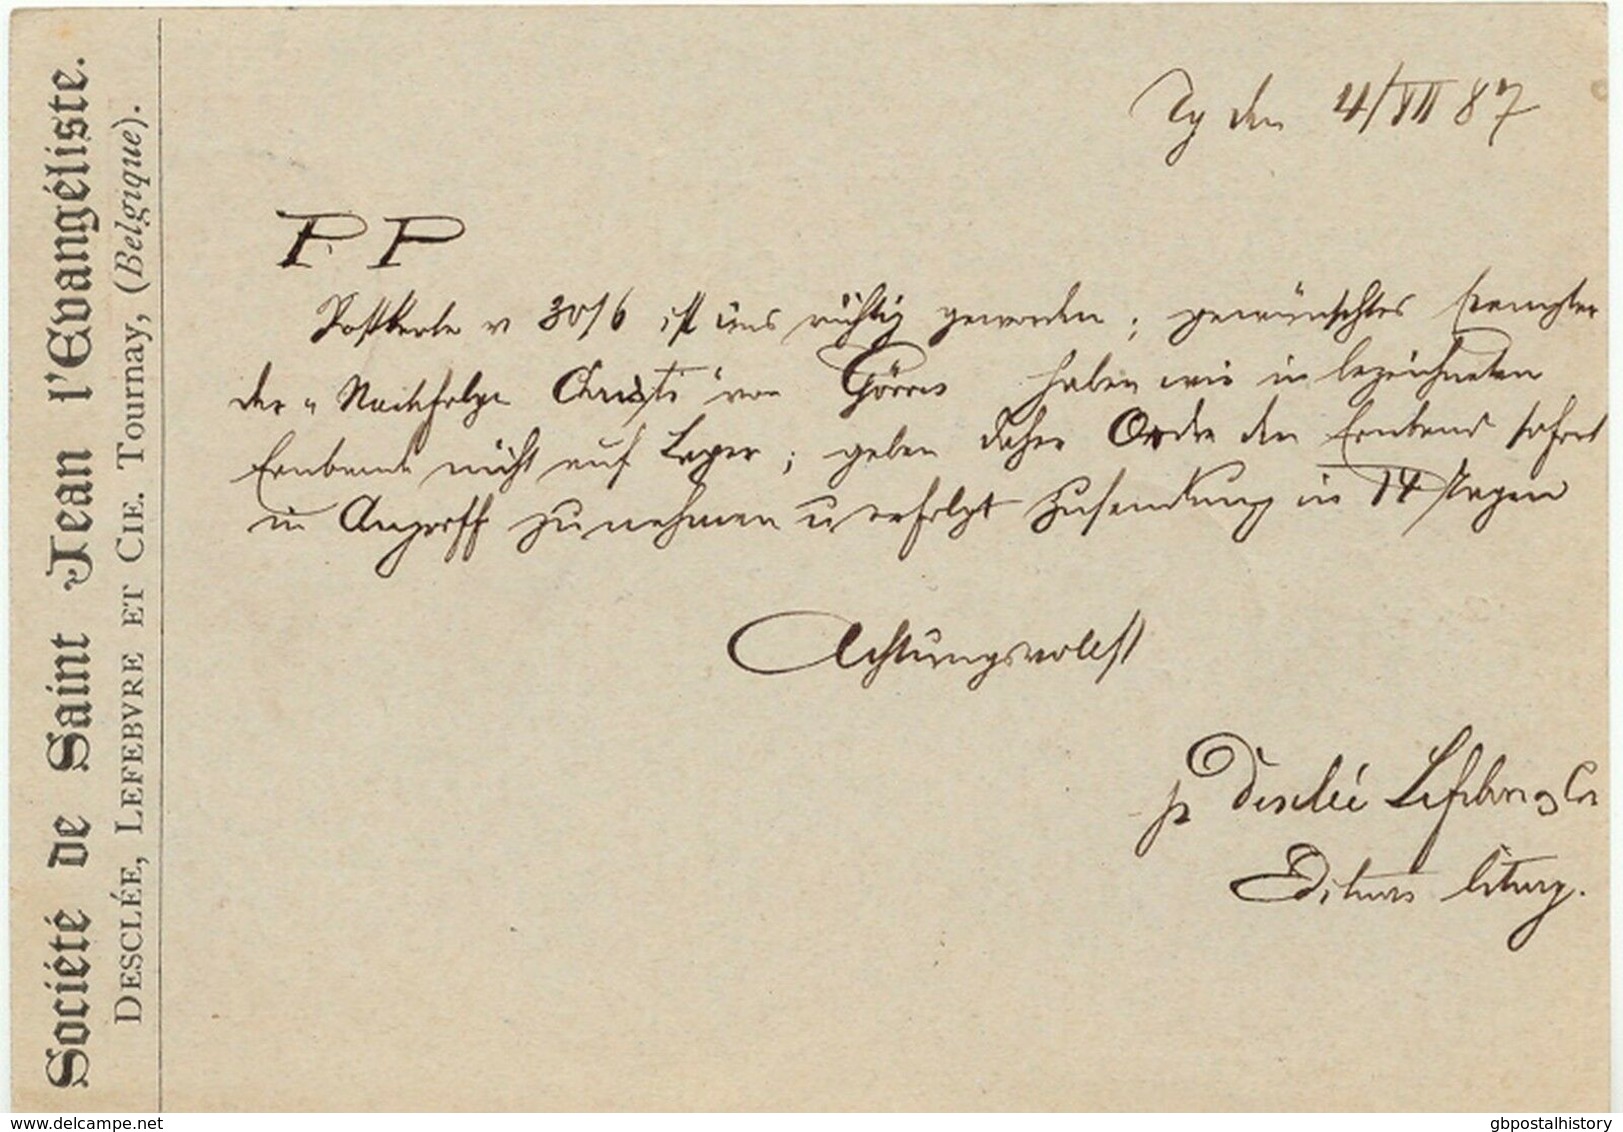 Société de Saint Jean l'Evangéliste.
DESCLÉE, LEFEBVRE ET CIE. TOURNAY, (Belgique).
Ty den 4/VII 87
P. P
Postkarte v 30/6 ist uns richtig geworden; gewünschtes Exemplar
der „Nachfolge Christi" von Görres haben wir in bezeichneten
Einbande nicht auf Lager; geben daher Ordre den Einband sofort
in Angriff zu nehmen u erfolgt Zusendung in 14 Tagen
Achtungsvollst
Desclée Lefebvre & Co
Editeurs liturg.
www.delcampe.net
gbpostalhistory